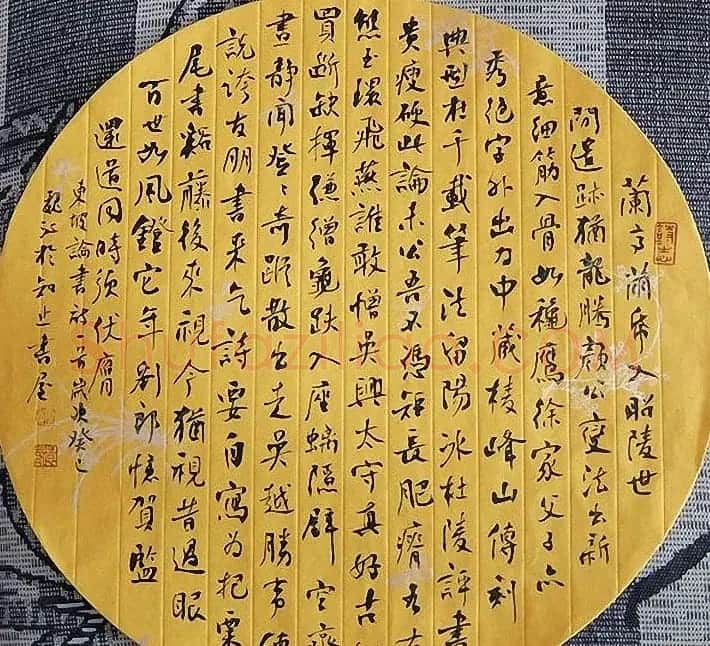 蘭亭繭帋入昭陵世
間遺跡猶龍騰顏公變法出新
意細筋入骨如穐鷹徐家父子亦
秀絕字外出力中藏棱峰山傳刻
典型在千載筆法留陽冰杜陵評書
貴瘦硬此論未公吾不憑短長肥瘠各有
態玉環飛燕誰敢憎吳興太守真好古
買斷缺揮縑繒龜趺入座螭隱壁空齋
晝靜聞登〻奇蹤散出走吳越勝事傳
說誇友朋書來乞詩要自寫為把栗
尾書谿藤後來視今猶視昔過眼
百世如風鐙它年劉郎憶賀監
還道同時須伏膺
東坡論書詩一首歲次癸巳
於知止書屋
shufaziliao.com